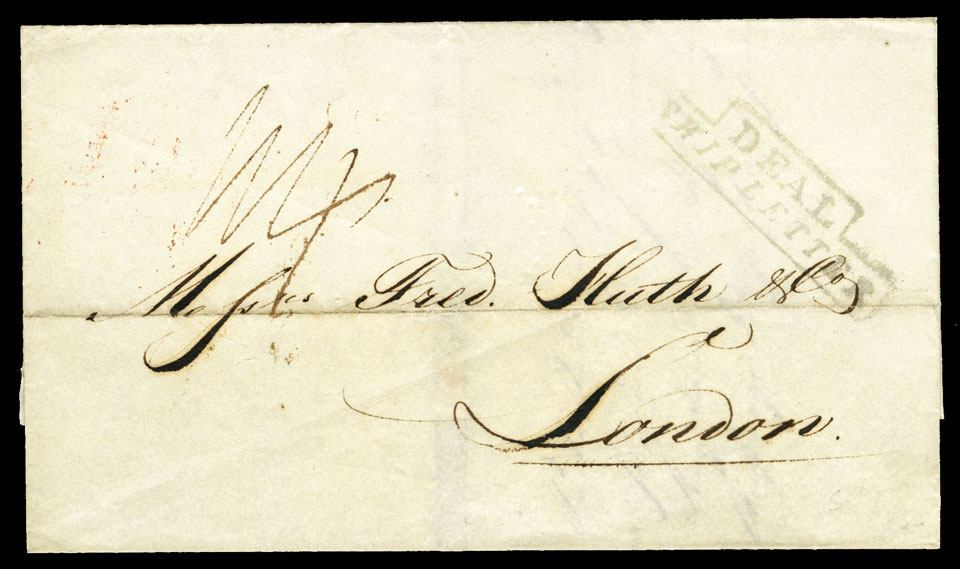 DEAL
SHIP LETTER
Messrs Fred. Huth & Co
London.